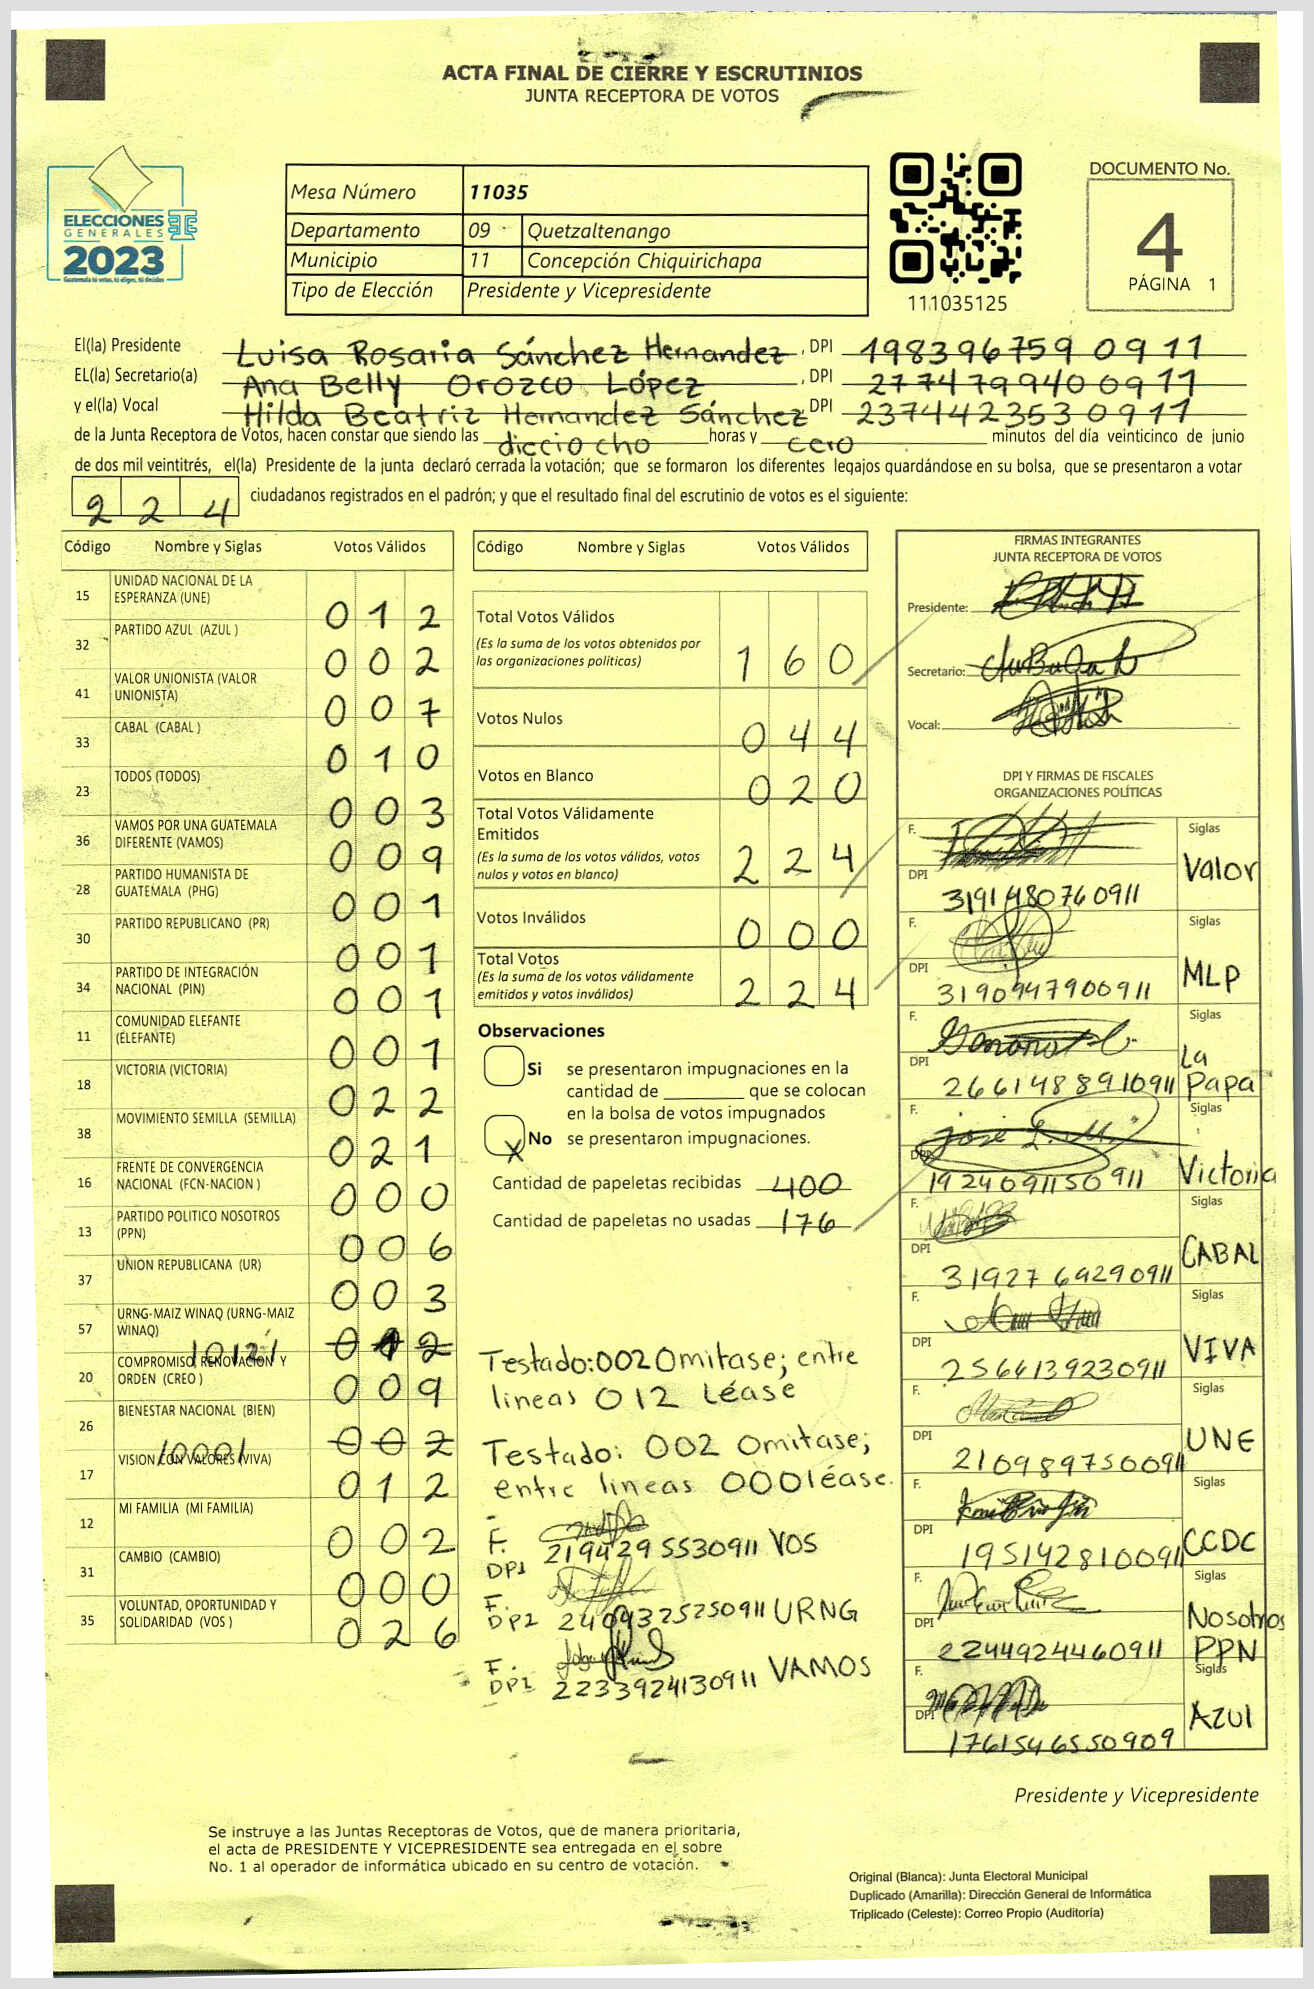 ACTA FINAL DE CIERRE Y ESCRUTINIOS
JUNTA RECEPTORA DE VOTOS
ELECCIONES
GENERALES
2023
Mesa Número 11035
Departamento 09 Quetzaltenango
Municipio 11 Concepción Chiquirichapa
Tipo de Elección Presidente y Vicepresidente
111035125
DOCUMENTO No.
4
PÁGINA 1
El(la) Presidente Luisa Rosaria Sánchez Hernandez, DPI 1983967590911
EL(la) Secretario(a) Ana Belly Orozco López, DPI 2774799400911
y el(la) Vocal Hilda Beatriz Hernandez Sánchez DPI 2374423530911
de la Junta Receptora de Votos, hacen constar que siendo las diecio cho horas y cero minutos del día veinticinco de junio
de dos mil veintitrés, el(la) Presidente de la junta declaró cerrada la votación; que se formaron los diferentes legajos quardándose en su bolsa, que se presentaron a votar
224 ciudadanos registrados en el padrón; y que el resultado final del escrutinio de votos es el siguiente:
Código Nombre y Siglas Votos Válidos
15 UNIDAD NACIONAL DE LA ESPERANZA (UNE) 012
32 PARTIDO AZUL (AZUL ) 002
41 VALOR UNIONISTA (VALOR UNIONISTA) 007
33 CABAL (CABAL ) 010
23 TODOS (TODOS) 003
36 VAMOS POR UNA GUATEMALA DIFERENTE (VAMOS) 009
28 PARTIDO HUMANISTA DE GUATEMALA (PHG) 001
30 PARTIDO REPUBLICANO (PR) 001
34 PARTIDO DE INTEGRACIÓN NACIONAL (PIN) 001
11 COMUNIDAD ELEFANTE (ELEFANTE) 001
18 VICTORIA (VICTORIA) 022
38 MOVIMIENTO SEMILLA (SEMILLA) 021
16 FRENTE DE CONVERGENCIA NACIONAL (FCN-NACION ) 000
13 PARTIDO POLITICO NOSOTROS (PPN) 006
37 UNION REPUBLICANA (UR) 003
57 URNG-MAIZ WINAQ (URNG-MAIZ WINAQ) 002
/012/
20 COMPROMISO, RENOVACION Y ORDEN (CREO ) 009
26 BIENESTAR NACIONAL (BIEN) 002
/000/
17 VISION CON VALORES (VIVA) 012
12 MI FAMILIA (MI FAMILIA) 002
31 CAMBIO (CAMBIO) 000
35 VOLUNTAD, OPORTUNIDAD Y SOLIDARIDAD (VOS ) 026
Código Nombre y Siglas Votos Válidos
Total Votos Válidos
(Es la suma de los votos obtenidos por
las organizaciones políticas) 160
Votos Nulos 044
Votos en Blanco 020
Total Votos Válidamente
Emitidos
(Es la suma de los votos válidos, votos
nulos y votos en blanco) 224
Votos Inválidos 000
Total Votos
(Es la suma de los votos válidamente
emitidos y votos inválidos) 224
Observaciones
Si se presentaron impugnaciones en la
cantidad de que se colocan
en la bolsa de votos impugnados
X No se presentaron impugnaciones.
Cantidad de papeletas recibidas 400
Cantidad de papeletas no usadas 176
Testado: 002 Omitase; entre
lineas 012 Léase
Testado: 002 Omitase;
entre lineas 000 léase.
F.
DPI 2194295530911 VOS
F.
DPI 2404325250911 URNG
F.
DPI 2233924130911 VAMOS
FIRMAS INTEGRANTES
JUNTA RECEPTORA DE VOTOS
Presidente:
Secretario:
Vocal:
DPI Y FIRMAS DE FISCALES
ORGANIZACIONES POLÍTICAS
F. Siglas
DPI 3191480760911 Valor
F. Siglas
DPI 3190947900911 MLP
F. Siglas
DPI 2661488910911 La Papa
F. Siglas
DPI 1924091150911 Victoria
F. Siglas
DPI 3192769290911 CABAL
F. Siglas
DPI 2564139230911 VIVA
F. Siglas
DPI 2109897500911 UNE
F. Siglas
DPI 1951428100911 CCDC
F. Siglas
DPI 2244924460911 Nosotros PPN
F. Siglas
DPI 1761546550909 Azul
Presidente y Vicepresidente
Se instruye a las Juntas Receptoras de Votos, que de manera prioritaria,
el acta de PRESIDENTE Y VICEPRESIDENTE sea entregada en el sobre
No. 1 al operador de informática ubicado en su centro de votación.
Original (Blanca): Junta Electoral Municipal
Duplicado (Amarilla): Dirección General de Informática
Triplicado (Celeste): Correo Propio (Auditoría)